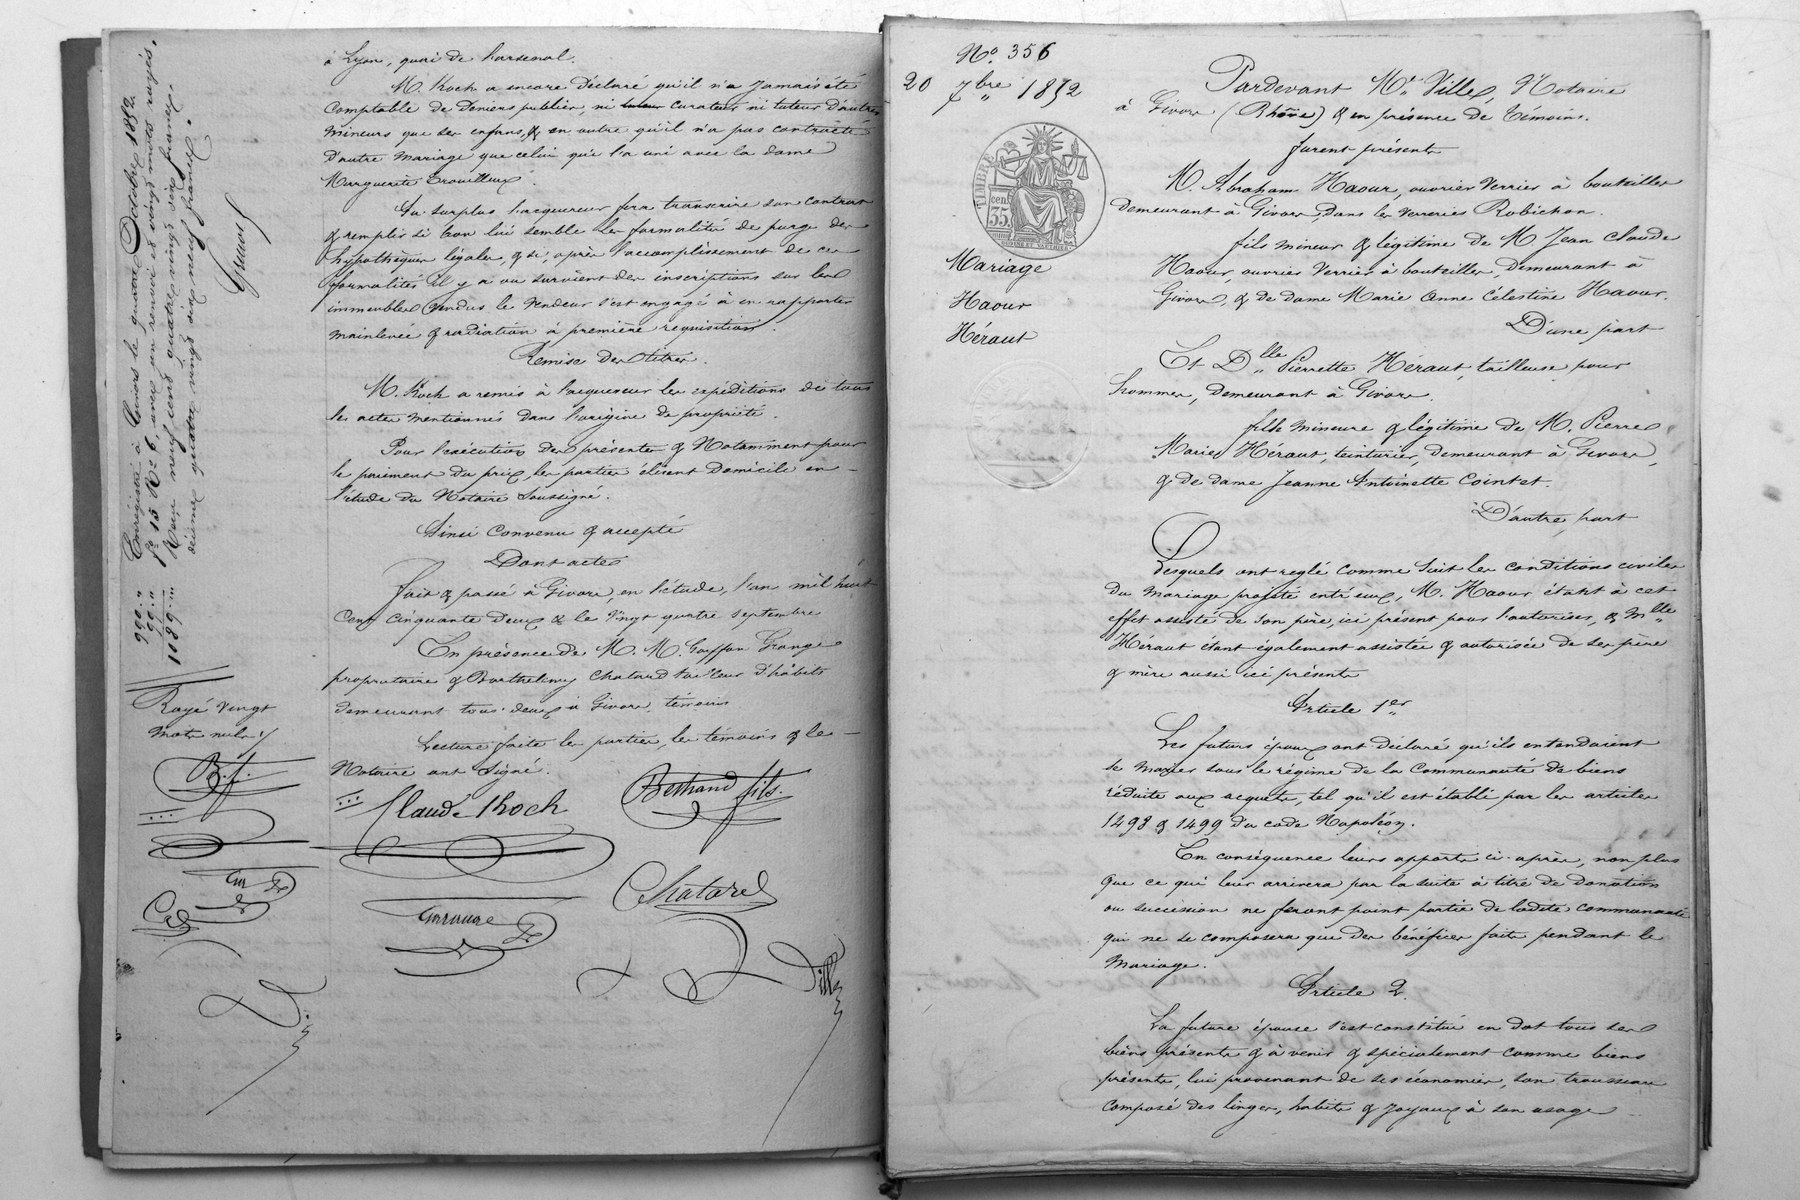 à Lyon, quai de l'arsenal.
M. Koch a encore déclaré qu'il n'a jamais été
comptable de deniers publics, ni tuteur curateur ni tuteur d'autres
mineurs que ses enfans, & en outre qu'il n'a pas contracté
d'autre mariage que celui qui l'a uni avec la dame
Marguerite
Au surplus l'acquéreur fera transcrire son contrat
& remplir si bon lui semble les formalités de purge des
hypothèques légales, & si, après l'accomplissement de ces
formalités il y a ou survient des inscriptions sur les
immeubles vendus le vendeur s'est engagé à en rapporter
mainlevée & radiation à première requisition.
Remise des titres.
M. Koch a remis à l'acquéreur les expéditions de tous
les actes mentionnés dans l'origine de propriété.
Pour l'exécution des présentes & notamment pour
le paiment du prix, les parties élisent domicile en
l'étude du Notaire soussigné.
Ainsi convenu & accepté
Dont acte
Fait & passé à Givors, en l'étude, l'an mil huit
cent cinquante deux & le vingt quatre septembre
En présence de M. M. Grange
proprietaire & Barthelemy Chatard tailleur d'habits
demeurant tous deux à Givors, témoins
Lecture faite les parties, les témoins & le
Notaire ont signé.
Claude Khoch
Bethand fils
Chatard
Ville
Enregistré à Givors le quatre Octobre 1852.
fo 15 Ro c 6, avec un renvoi et vingt mots rayés.
Reçu neuf cent quatre vingt dix francs,
décime quatre vingt dix neuf francs.
990 "
99 "
1089 "
Rayé vingt
mots nuls
B. f.
No. 356
20 7bre 1852
TIMBRE
35
cen
Mariage
Haour
Héraut
Pardevant Me Ville, Notaire
à Givors (Rhône) & en présence de témoins.
furent présents
M. Abraham Haour, ouvrier verrier à bouteilles
demeurant à Givors, dans les verreries Robichon.
fils mineur & légitime de M. Jean Claude
Haour, ouvrier verrier à bouteilles, demeurant à
Givors, & de dame Marie Anne Célestine Haour.
D'une part
Et Dlle Pierrette Héraut, tailleuse pour
hommes, demeurant à Givors.
fille mineure & légitime de M. Pierre
Marie Héraut, teinturier, demeurant à Givors,
& de dame Jeanne Antoinette Cointet.
D'autre part
Lesquels ont reglé comme suit les conditions civiles
du mariage projeté entr'eux, M. Haour étant à cet
effet assisté de son père, ici présent pour l'autoriser, & Mlle
Héraut étant également assistée & autorisée de ses père
& mère aussi ici présents
Article 1er
Les futurs époux ont déclaré qu'ils entendaient
se marier sous le régime de la communauté de biens
réduite aux acquets, tel qu'il est établi par les articles
1498 & 1499 du code Napoléon.
En conséquence leurs apports ci-après, non plus
que ce qui leur arrivera par la suite à titre de donation
ou succession ne feront point partie de ladite communauté
qui ne se composera que des bénéfices faits pendant le
mariage.
Article 2.
La future épouse s'est constitué en dot tous ses
biens présents & à venir & spécialement comme biens
présents, lui provenant de ses économies, son trousseau
composé des linges, habits & joyaux à son usage